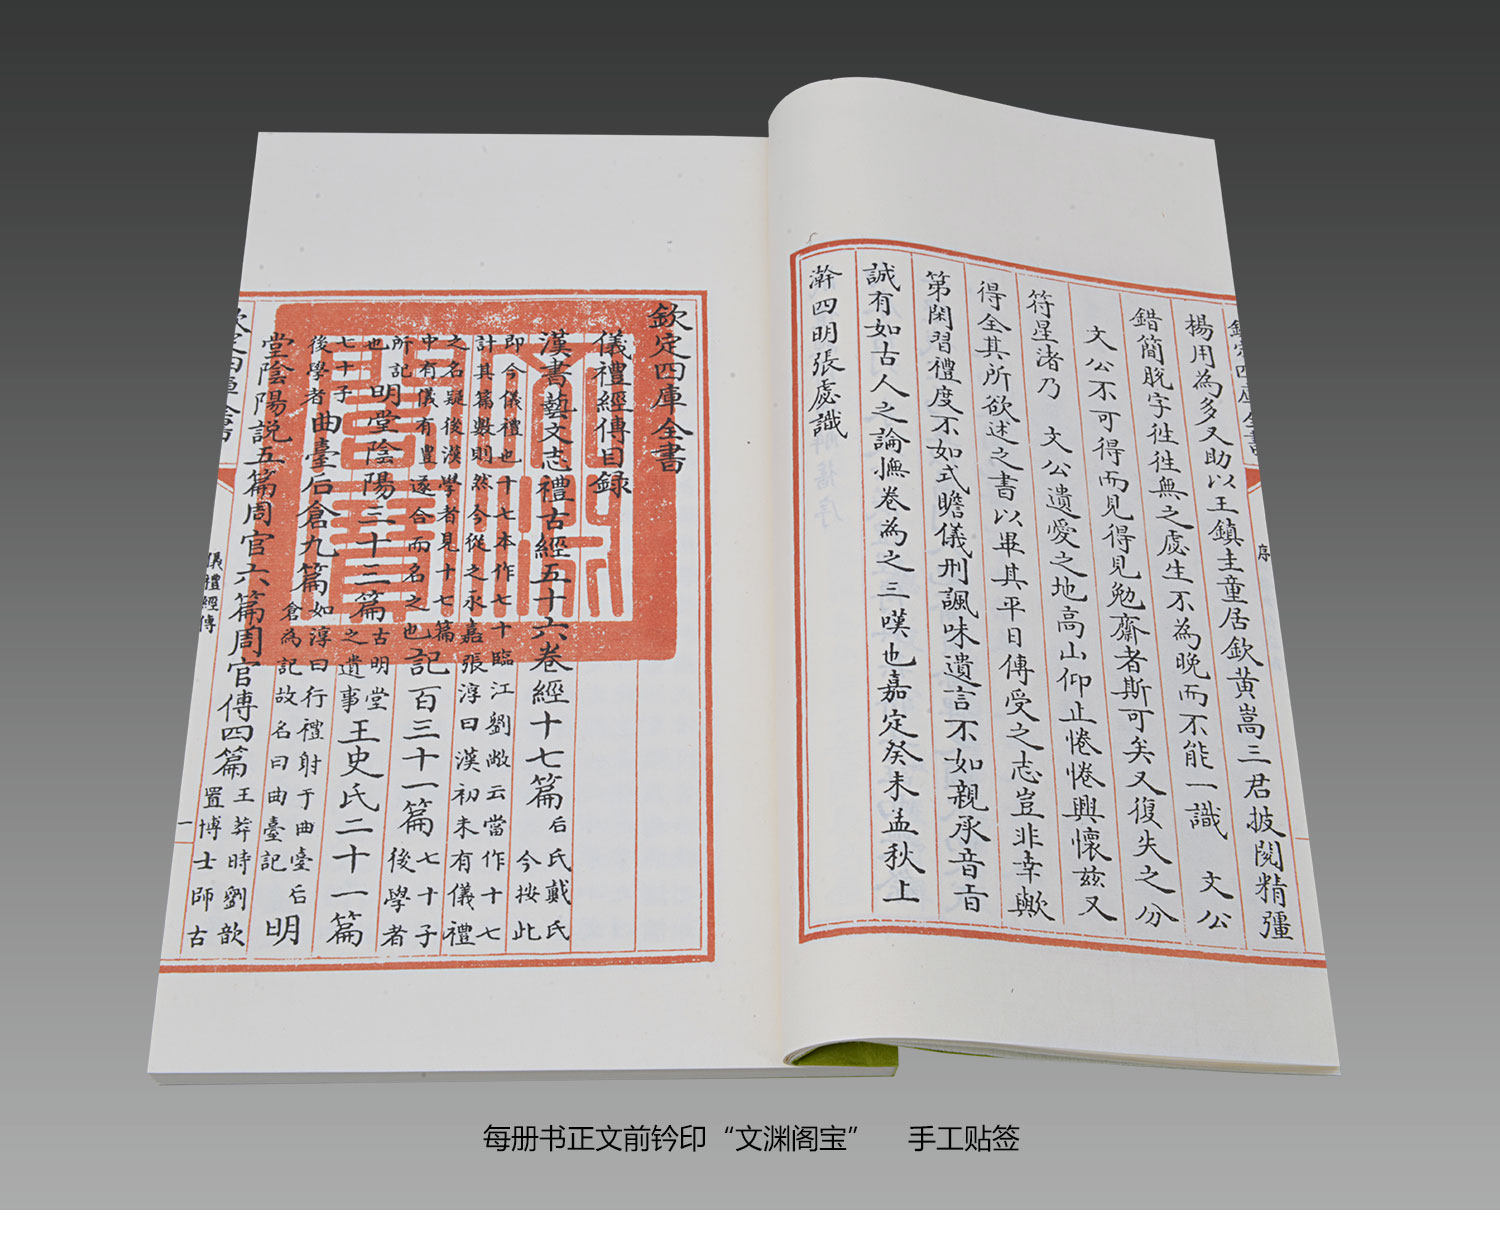 楊用為多又助以王鎮圭童居欽黄嵩三君披閲精彊
錯簡脱字徃徃無之處生不為晩而不能一識　文公
文公不可得而見得見勉齋者斯可矣又復失之分
符星渚乃　文公遺愛之地高山仰止惓惓興懷兹又
得全其所欲述之書以畢其平日傳受之志豈非幸歟
第閑習禮度不如式瞻儀刑諷味遺言不如親承音㫖
誠有如古人之論撫卷為之三嘆也嘉定癸未孟秋上
澣四明張虙識
序
欽定四庫全書
儀禮經傳目録
漢書藝文志禮古經五十六卷經十七篇后氏戴氏
今按此
即今儀禮也十七本作七十臨江劉敞云當作十七
計其篇數則然今從之永嘉張淳曰漢初未有儀禮
之名疑後漢學者見十七篇
中有儀有豊遂合而名之也記百三十一篇七十子
後學者
所記
也明堂陰陽三十三篇古明堂
之遺事王史氏二十一篇
七十子
後學者曲臺后倉九篇如淳曰行禮射于曲臺后
倉為記故名曰曲臺記明
堂陰陽説五篇周官六篇周官傳四篇王莽時劉歆
置博士師古
儀禮經傳
一
文淵閣寶
每册书正文前钤印“文渊阁宝”　手工贴签